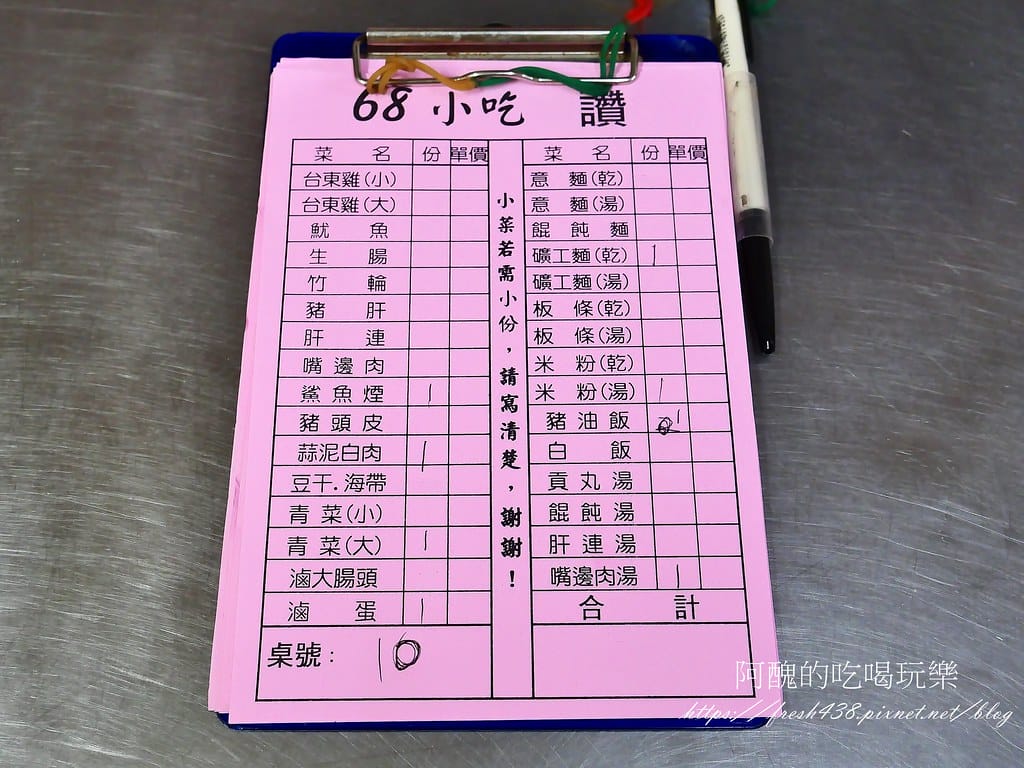 68 小吃 讚
菜 名 份 單價
台東雞(小)
台東雞(大)
魷 魚
生 腸
竹 輪
豬 肝
肝 連
嘴邊肉
鯊魚煙 1
豬頭皮
蒜泥白肉 1
豆干.海帶
青菜(小)
青菜(大) 1
滷大腸頭
滷 蛋 1
桌號: 10
小菜若需小份,請寫清楚,謝謝!
菜 名 份 單價
意 麵(乾)
意 麵(湯)
餛飩麵
礦工麵(乾) 1
礦工麵(湯)
板 條(乾)
板 條(湯)
米 粉(乾)
米 粉(湯) 1
豬油飯 1
白 飯
貢丸湯
餛飩湯
肝連湯
嘴邊肉湯 1
合 計
阿醜的吃喝玩樂
https://fresh438.pixnet.net/blog